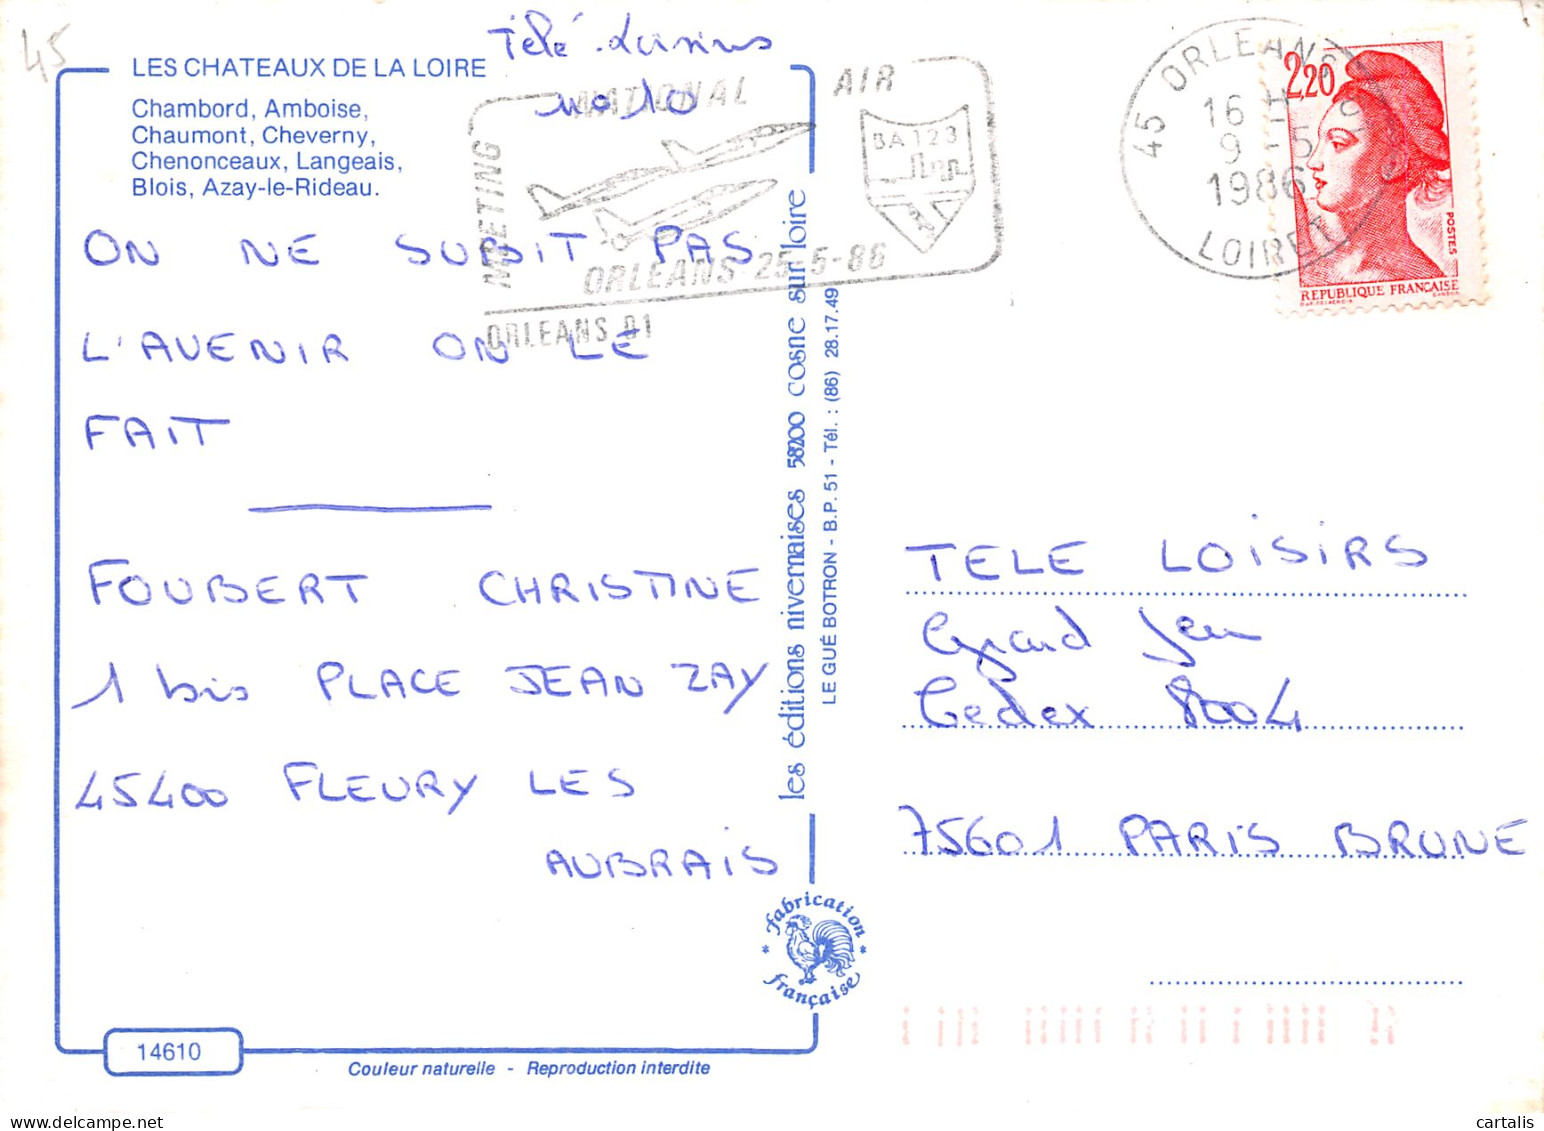 45
Télé-Loisirs
n° 10
LES CHATEAUX DE LA LOIRE
Chambord, Amboise,
Chaumont, Cheverny,
Chenonceaux, Langeais,
Blois, Azay-le-Rideau.
MEETING NATIONAL AIR
BA 123
ORLEANS 25-5-86
ORLEANS 01
45 ORLEANS
16 H
9 -5
1986
LOIRET
2,20
POSTES
REPUBLIQUE FRANÇAISE
ON NE SUBIT PAS
L'AVENIR ON LE
FAIT
FOUBERT CHRISTINE
1 bis PLACE JEAN ZAY
45400 FLEURY LES
AUBRAIS
les éditions nivernaises 58200 cosne sur loire
LE GUÉ BOTRON - B.P. 51 - Tél. : (86) 28.17.49
TELE LOISIRS
Grand Jeu
Cedex 8004
75601 PARIS BRUNE
fabrication
française
14610
Couleur naturelle - Reproduction interdite
cartalis